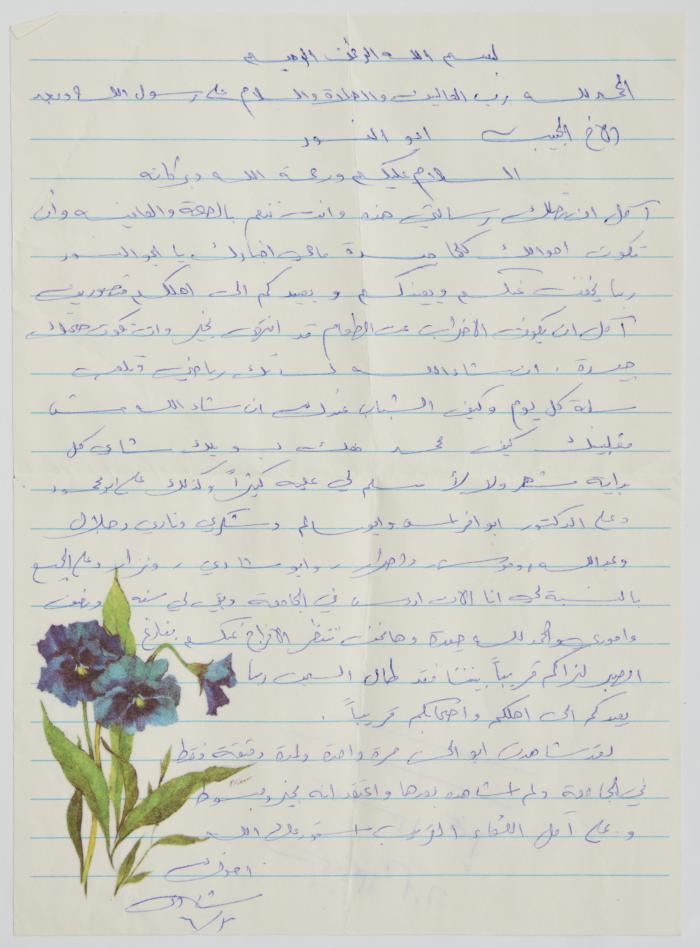 بسم الله الرحمن الرحيم
الحمد لله رب العالمين والصلاة والسلام على رسول الله وبعد
الأخ الحبيب ابو النور
السلام عليكم ورحمة الله وبركاته
آمل ان تصلك رسالتي هذه وانت تنعم بالصحة والعافية وأن
تكون احوالك كلها جيدة ما هي اخبارك يا ابو النور
ربنا يخفف عنكم ويعينكم و يعيدكم الى اهلكم
آمل ان يكون الاضراب عن الطعام قد انتهى بخير وان تكون صحتك
جيدة . ان شاء الله رياضي وتلعب
سلة كل يوم وكيف الشباب عندك ان شاء الله مش
كيف محمد شاي كل
بداية شهر ولا لأ سلم لي عليه كثيراً وكذلك على ابو محمود
وعلى الدكتور ابو فراس وابو سالم وشكري وفادي وجلال
وعبد الله وابو شادي ونزار وعلى الجميع
بالنسبة لي انا الآن ادرس في الجامعة وبقي لي سنة ونصف
واموري والحمد لله جيدة وها نحن ننتظر الافراج عنكم بفارغ
الصبر لنراكم قريباً بيننا فقد طال السجن ربنا
يعيدكم الى اهلكم واحبابكم قريباً .
لقد شاهدت ابو الحسن مرة واحدة ولمدة دقيقة فقط
في الجامعة ولم اشاهده بعدها واعتقد انه بخير ومبسوط
و على أمل اللقاء القريب استودعك الله
اخوك
شادي
٦/٣